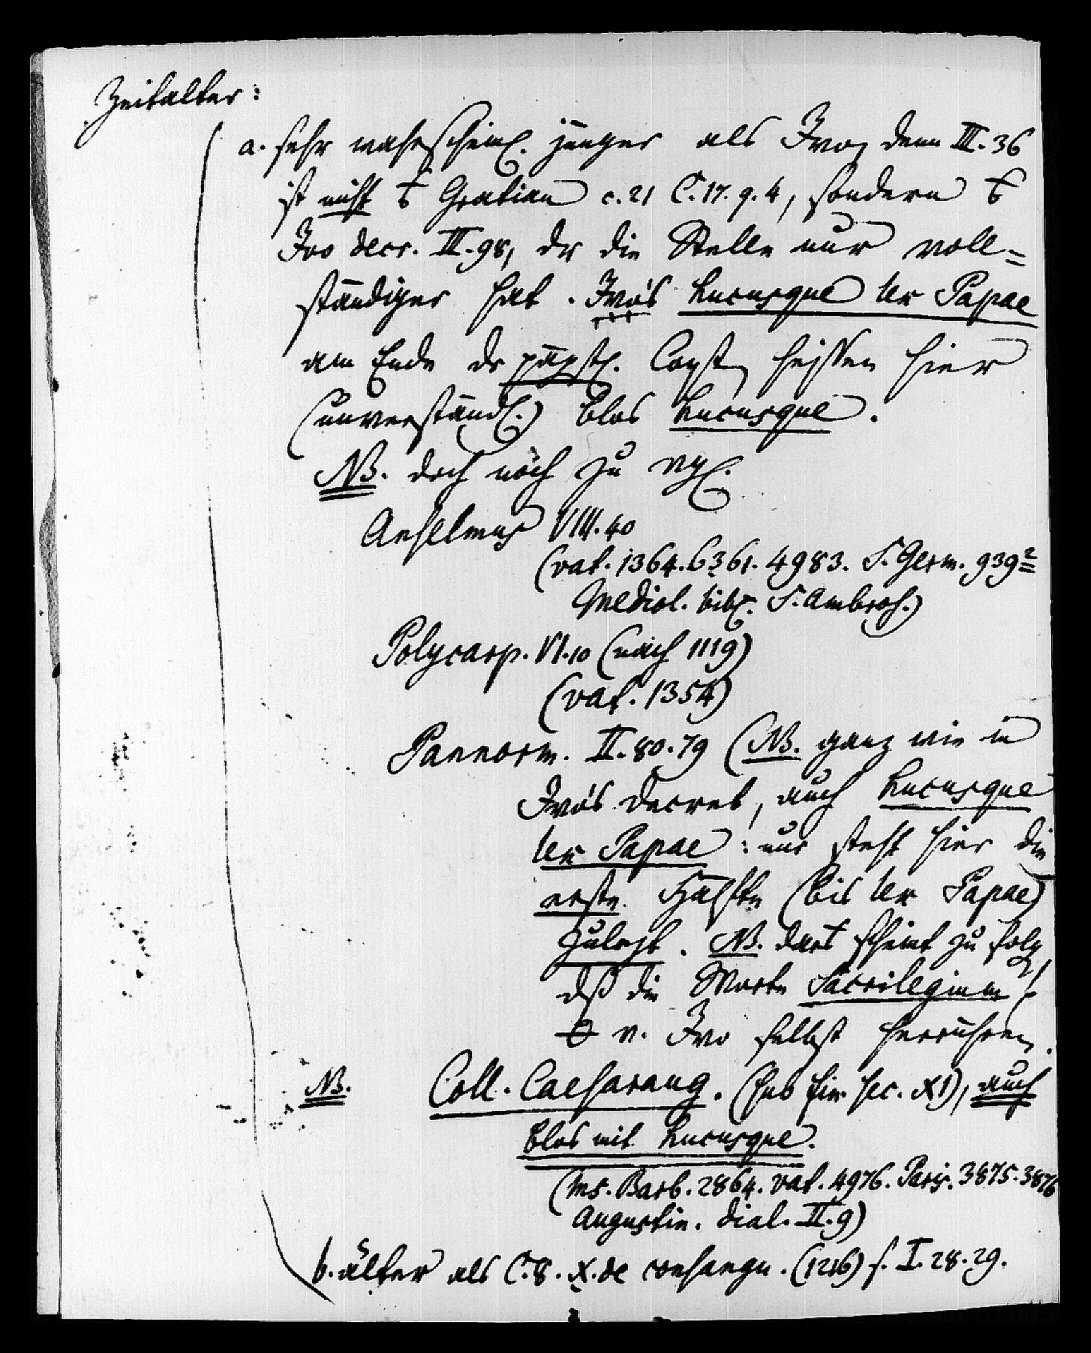 Zeitalter:
a. sehr wahrscheinl. jünger als Ivo, denn III. 36
ist nicht Gratian c. 21 C. 17. q. 4, sondern
Ivo decr. III. 98, der die Stelle nur voll=
ständiger hat. Ivo's hucusque ler Papae
am Ende der päpstl. Const. heissen hier
(unverständl.) blos hucusque.
NB. doch noch zu vgl.
Anselmus VIII. 40
(vat. 1364. 6361. 4983. S. Germ. 939²
Mediol. bibl. S. Ambros.)
Polycarp. VI. 10 (nach 1119)
(vat. 1354)
Pannorm. II. 80. 79 (NB. ganz wie in
Ivo's Decret, auch hucusque
ler Papae: nur steht hier die
erste Hälfte (bis ler Papae)
zuletzt. NB. daraus scheint zu folg.
dß die Worte Sacrilegium
v. Ivo selbst herrühren.
NB. Coll. Caesaraug. (sub fin. sec. XI), auch
blos mit hucusque.
(Ms. Barb. 2864. vat. 4976. Paris. 3875. 3876
Augustin. dial. II. 9)
b. älter als C. 8. X. de consangu. (1216) s. I. 28. 29.